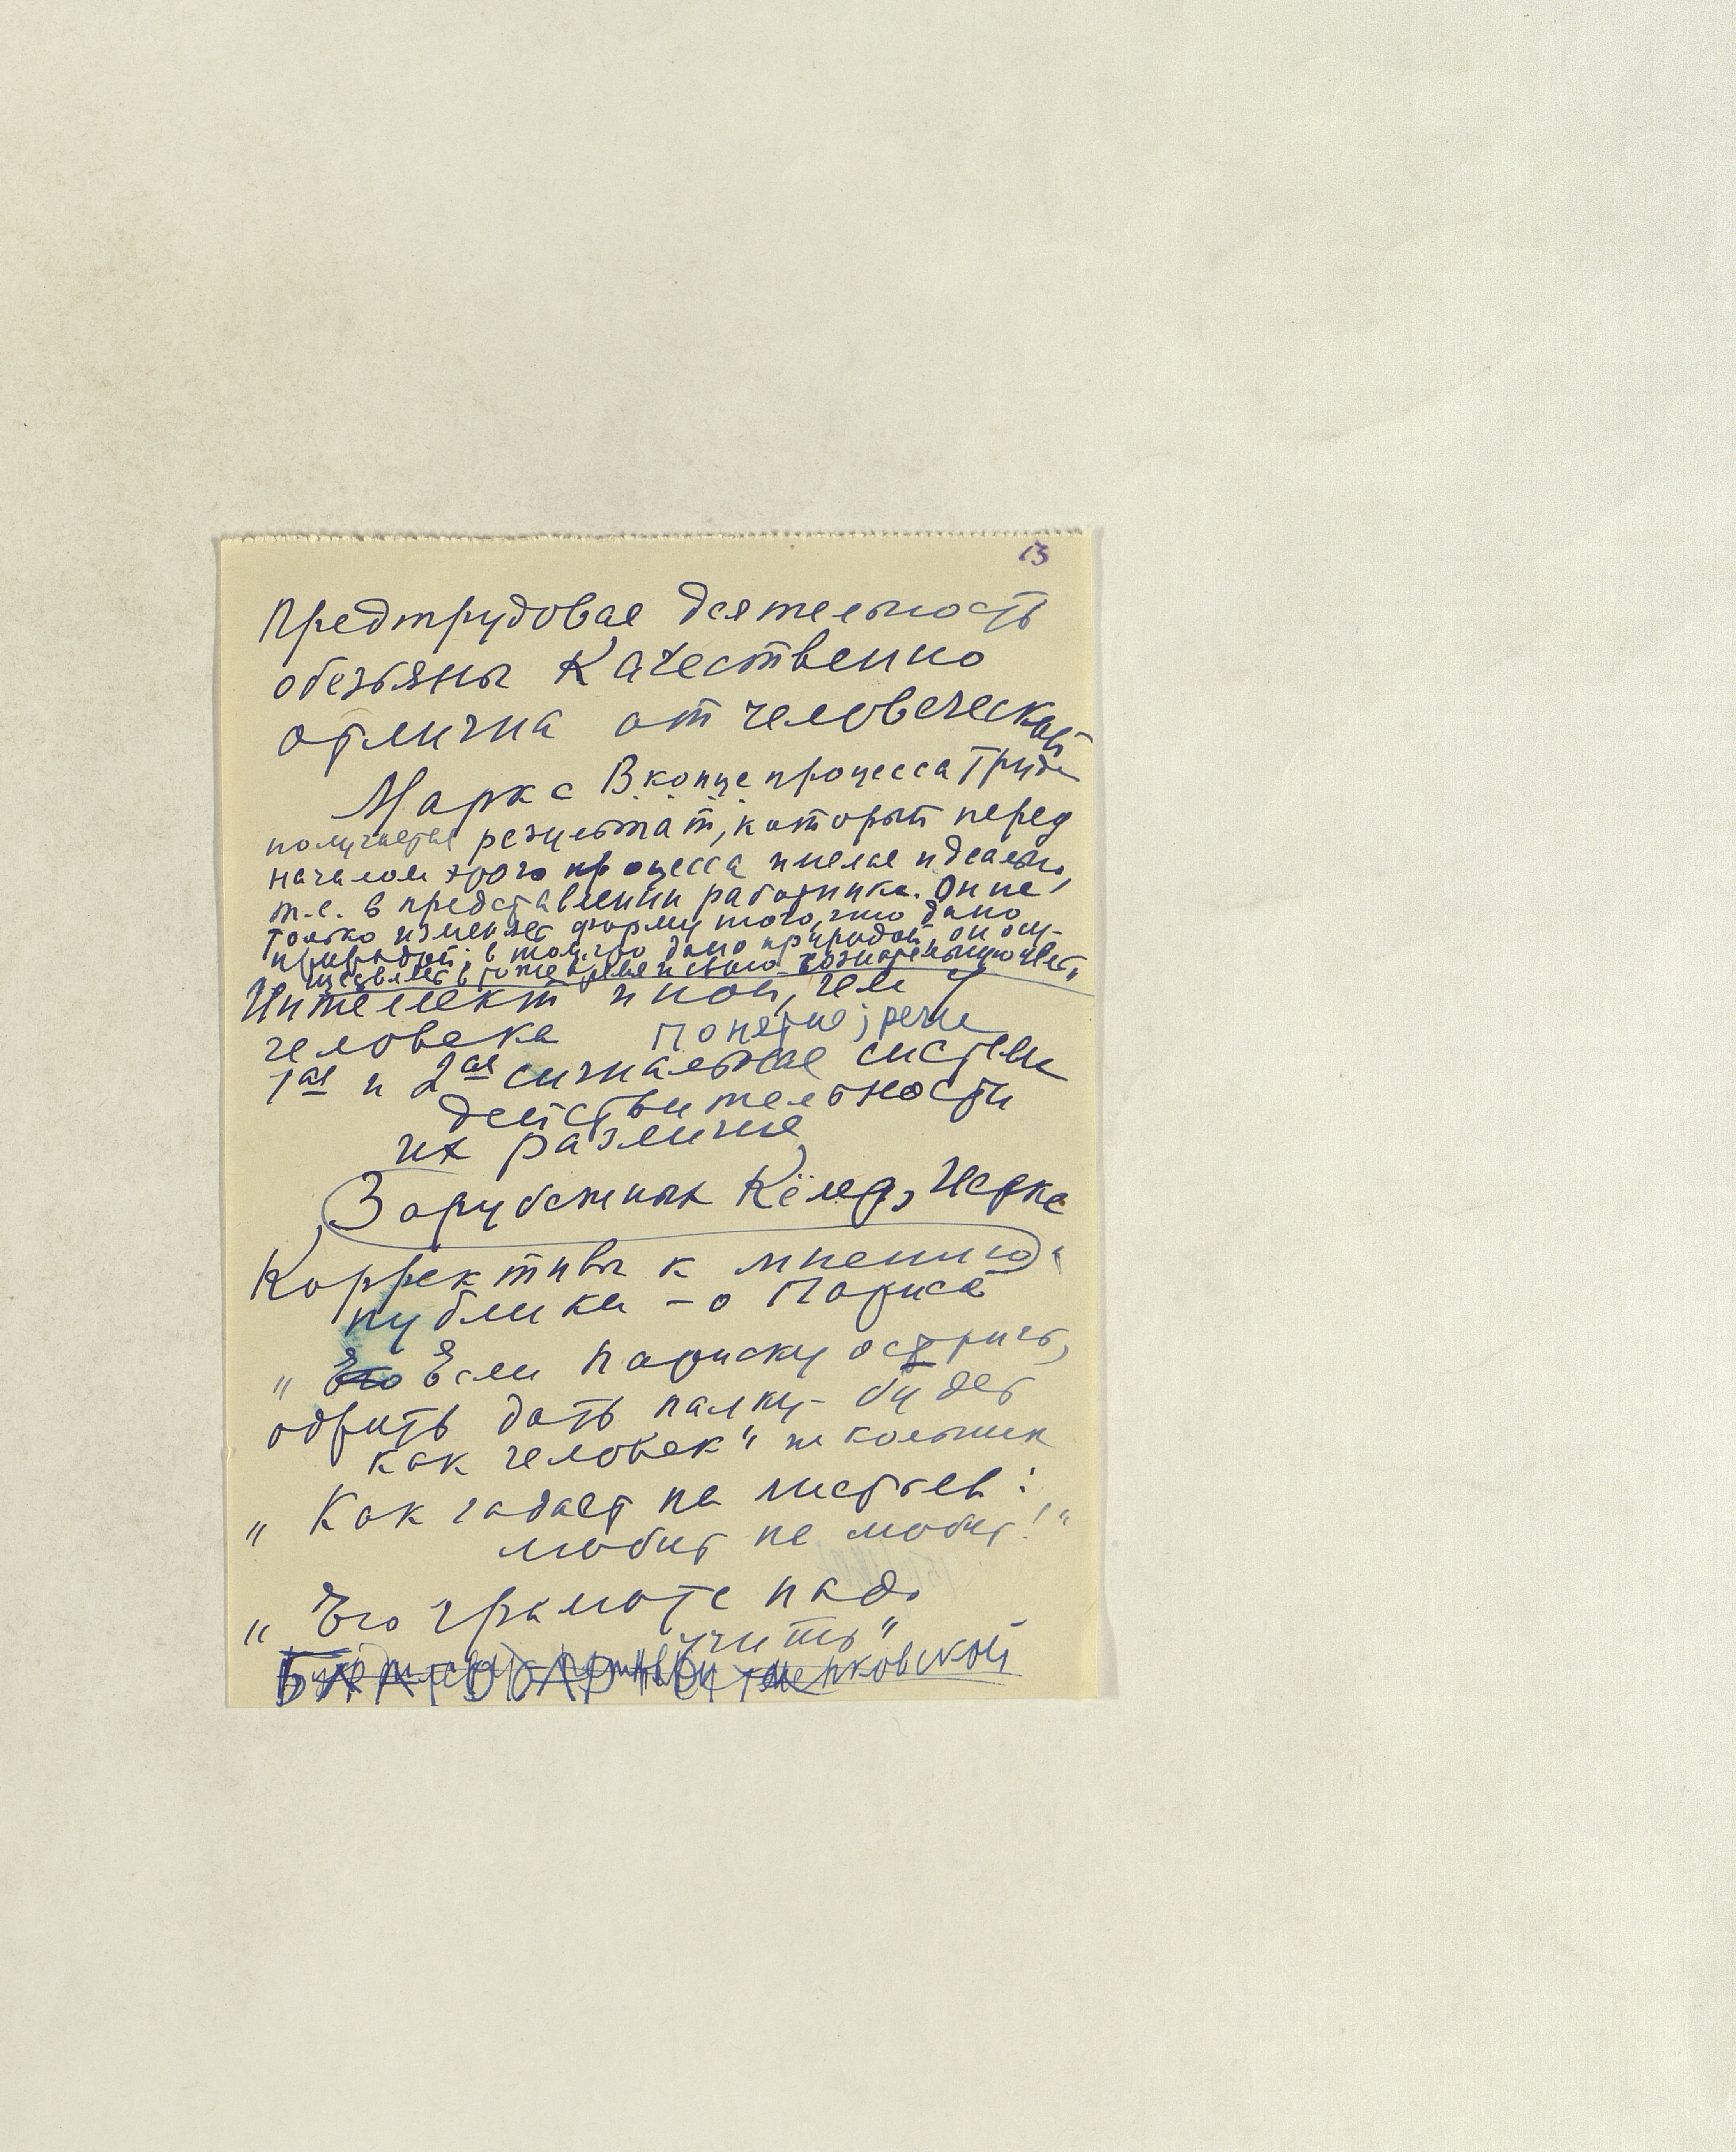 13
Предтрудовая деятельность
обезьяны качественно
отлична от человеческой
Маркс В конце процесса труда
получается результат, который перед
началом этого процесса имелся идеально,
т.е. в представлении работника. Он не
только изменяет форму того, что дано
природой; в том, что дано природой он осу-
ществляет в то же время и свою сознательную цель"
Интеллект иной, чем у
человека Понятие; речи
1ая и 2ая сигнальные системы
действительности
их различие
Зарубежных Кёлер, Иеркс
Коррективы к мнению
публики – о Париса
" Его Если Париску остричь,
одвить дать палку – будет
как человек" школьник
" Как гадает на листьев:
любит не любит!"
" Его грамоте надо
учить"